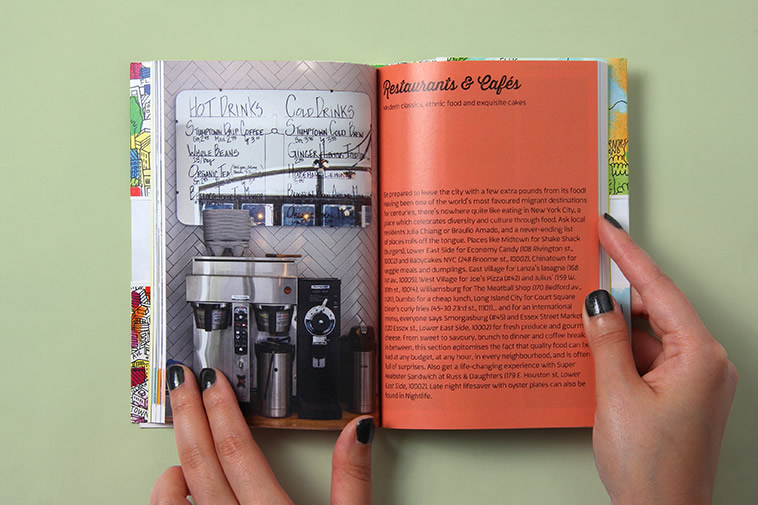 HOT DRINKS
STUMPTOWN DRIP COFFEE
WHOLE BEANS
ORGANIC TEA
COLD DRINKS
STUMPTOWN COLD BREW
GINGER
Restaurants & Cafés
Modern classics, ethnic food and exquisite cakes
Be prepared to leave the city with a few extra pounds from its food!
Having been one of the world's most favoured migrant destinations
for centuries, there's nowhere quite like eating in New York City, a
place which celebrates diversity and culture through food. Ask local
residents Julia Chiang or Braulio Amado, and a never-ending list
of places rolls off the tongue. Places like Midtown for Shake Shack
(burgers), Lower East Side for Economy Candy (108 Rivington st.,
10002) and Babycakes NYC (248 Broome st., 10002), Chinatown for
veggie meals and dumplings, East Village for Lanza's lasagna (168
1st av., 10009), West Village for Joe's Pizza (#42) and Julius' (159 W.
10th st., 10014), Williamsburg for The Meatball Shop (170 Bedford av.,
Dumbo for a cheap lunch, Long Island City for Court Square
Diner's curly fries (45-30 23rd st., 11101)... and for an international
menu, everyone says Smorgasburg (#45) and Essex Street Market
(120 Essex st., Lower East Side, 10002) for fresh produce and gourmet
cheese. From sweet to savoury, brunch to dinner and coffee breaks
in between, this section epitomises the fact that quality food can be
had at any budget, at any hour, in every neighbourhood, and is often
full of surprises. Also get a life-changing experience with Super
Heebster Sandwich at Russ & Daughters (179 E. Houston st., Lower
East Side, 10002). Late night lifesaver with oyster plates can also be
found in Nightlife.